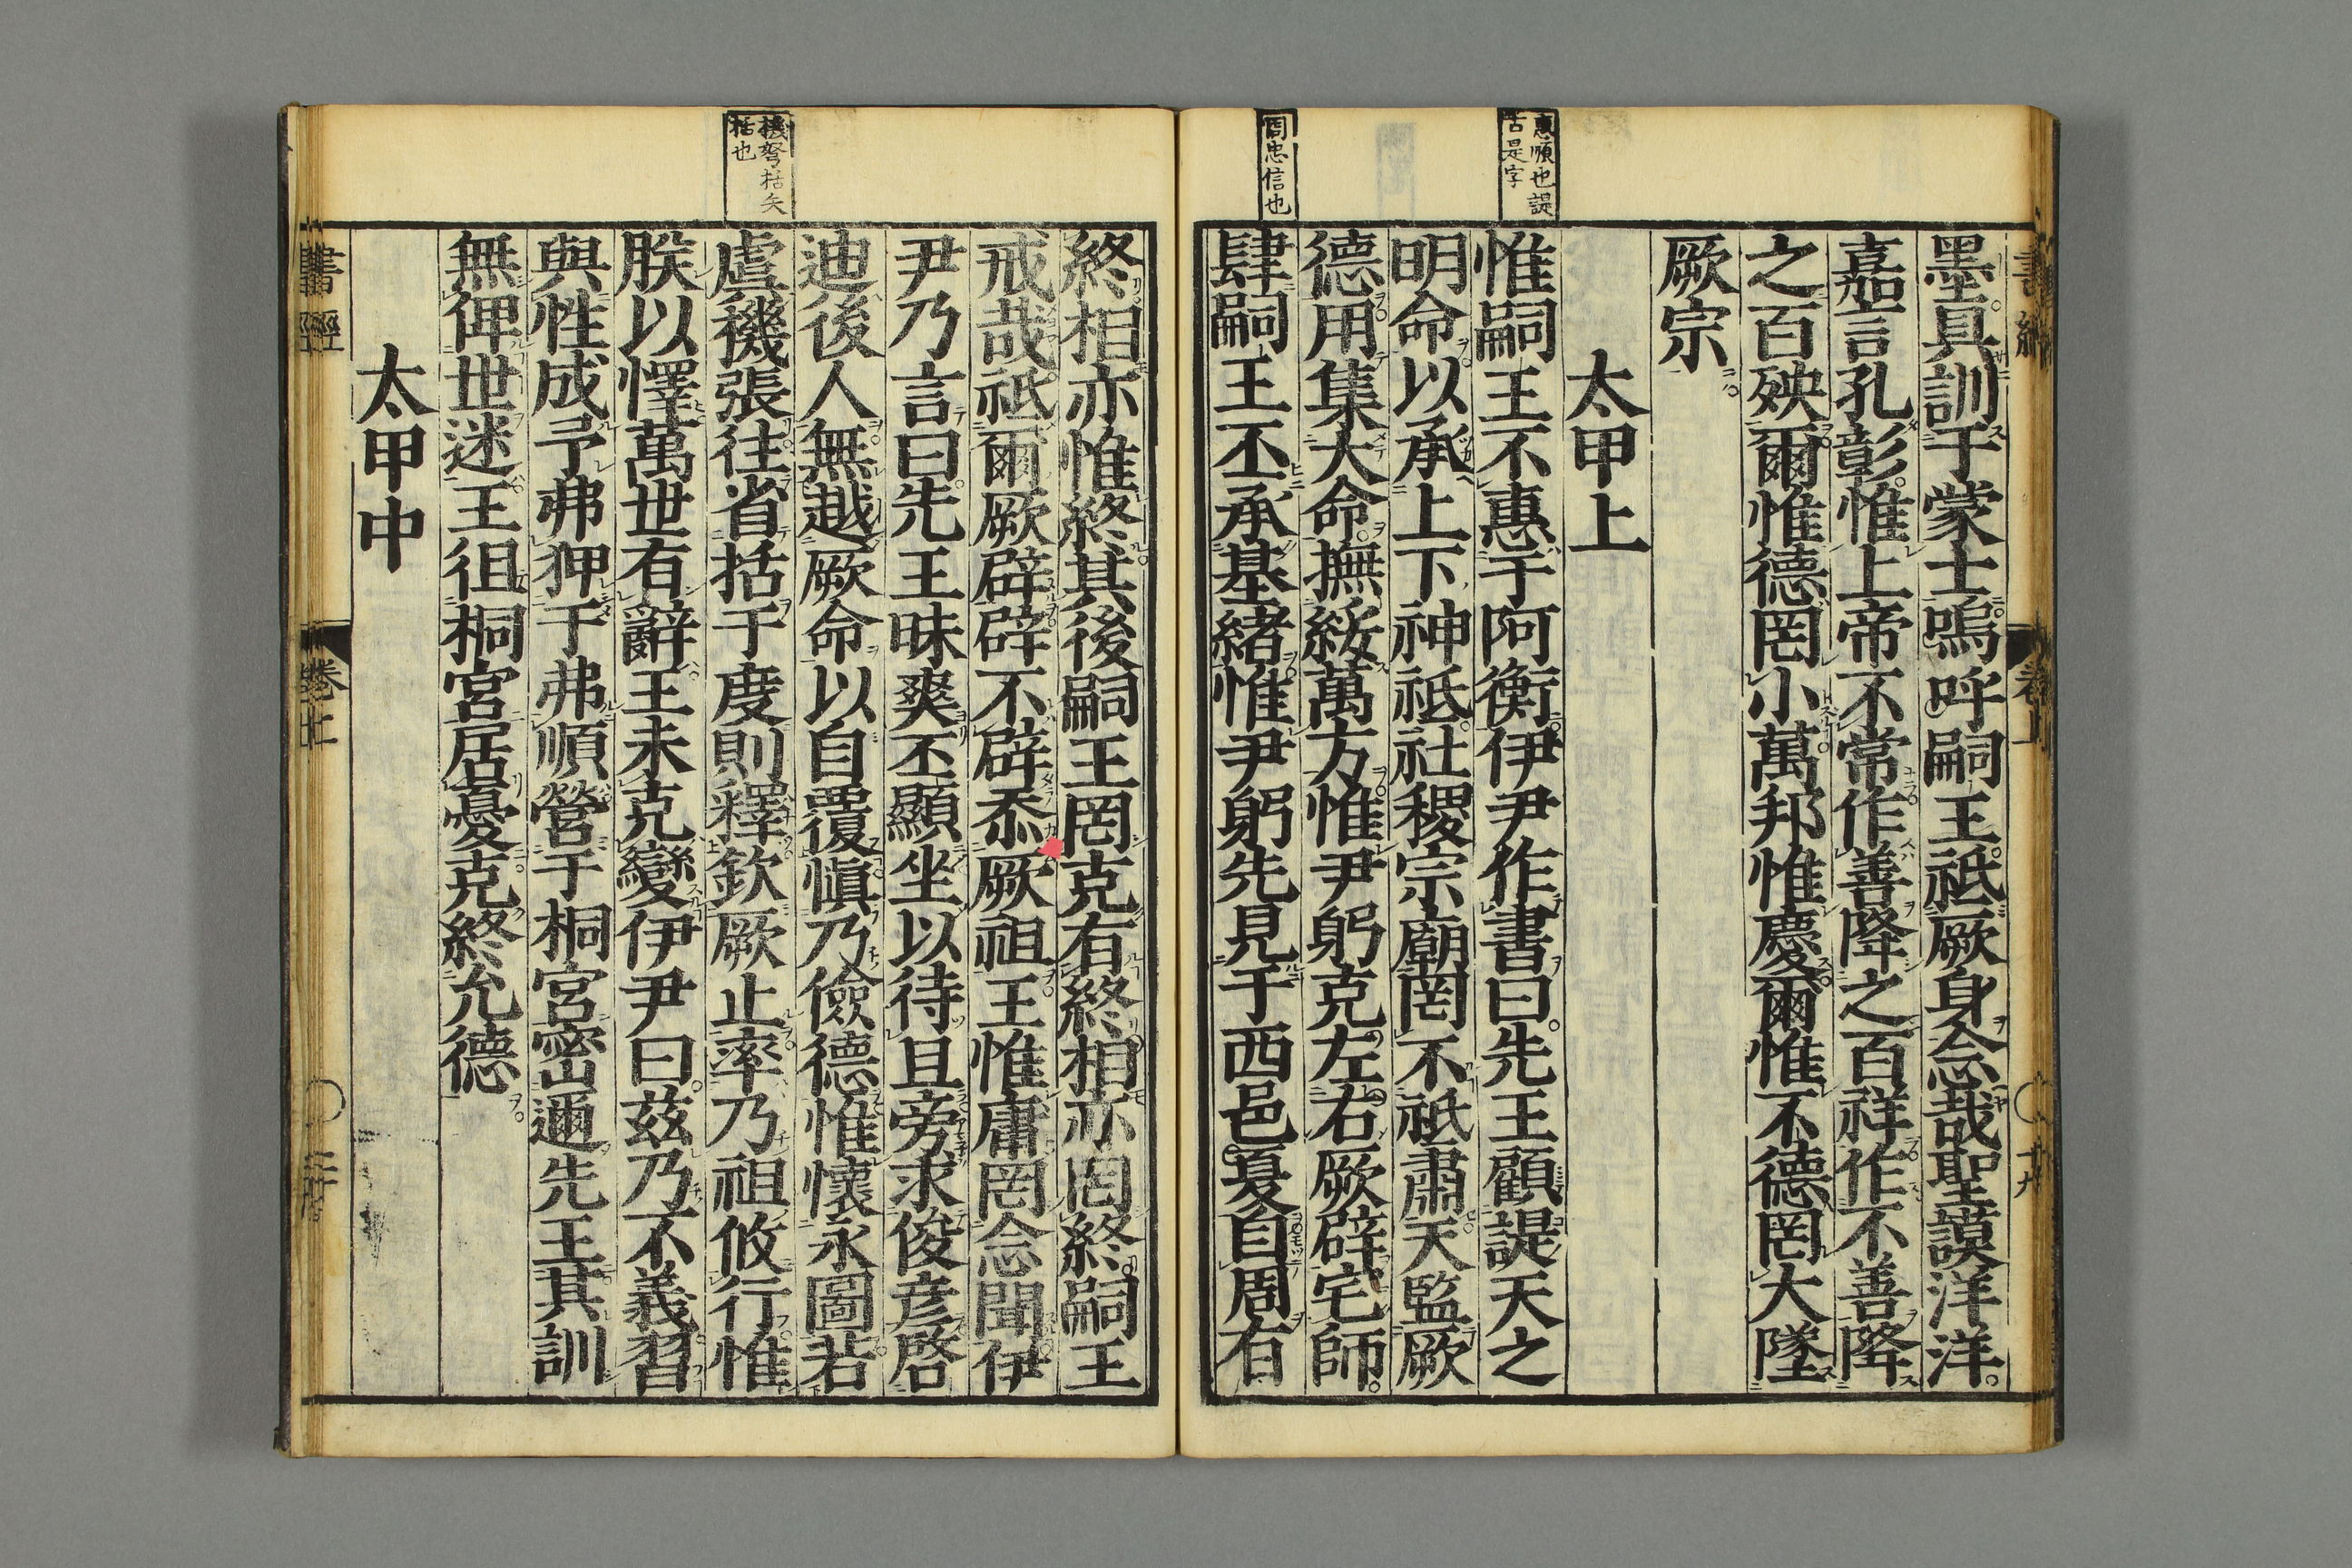 惠順也諟
古是字
周忠信也
墨具訓于蒙士嗚呼嗣王祗厥身念哉聖謨洋洋
嘉言孔彰惟上帝不常作善降之百祥作不善降
之百殃爾惟德罔小萬邦惟慶爾惟不德罔大墜
厥宗
太甲上
惟嗣王不惠于阿衡伊尹作書曰先王顧諟天之
明命以承上下神祗社稷宗廟罔不祗肅天監厥
德用集大命撫綏萬方惟尹躬克左右厥辟宅師
肆嗣王丕承基緒惟尹躬先見于西邑夏自周有
機弩括矢
括也
終相亦惟終其後嗣王罔克有終相亦罔終嗣王
戒哉祗爾厥辟辟不辟忝厥祖王惟庸罔念聞伊
尹乃言曰先王昧爽丕顯坐以待旦旁求俊彥啓
迪後人無越厥命以自覆愼乃儉德惟懷永圖若
虞機張往省括于度則釋欽厥止率乃祖攸行惟
朕以懌萬世有辭王未克變伊尹曰茲乃不義習
與性成予弗狎于弗順營于桐宮密邇先王其訓
無俾世迷王徂桐宮居憂克終允德
太甲中
書經